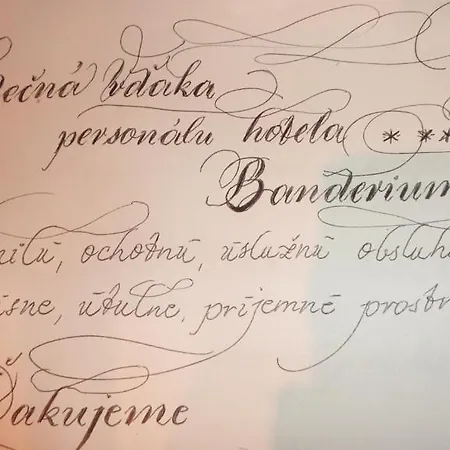 ečná vďaka
personálu hotela ***
Banderium
milú, ochotnú, úslužnú obsluh
ásne, útulné, príjemné prostr
Ďakujeme